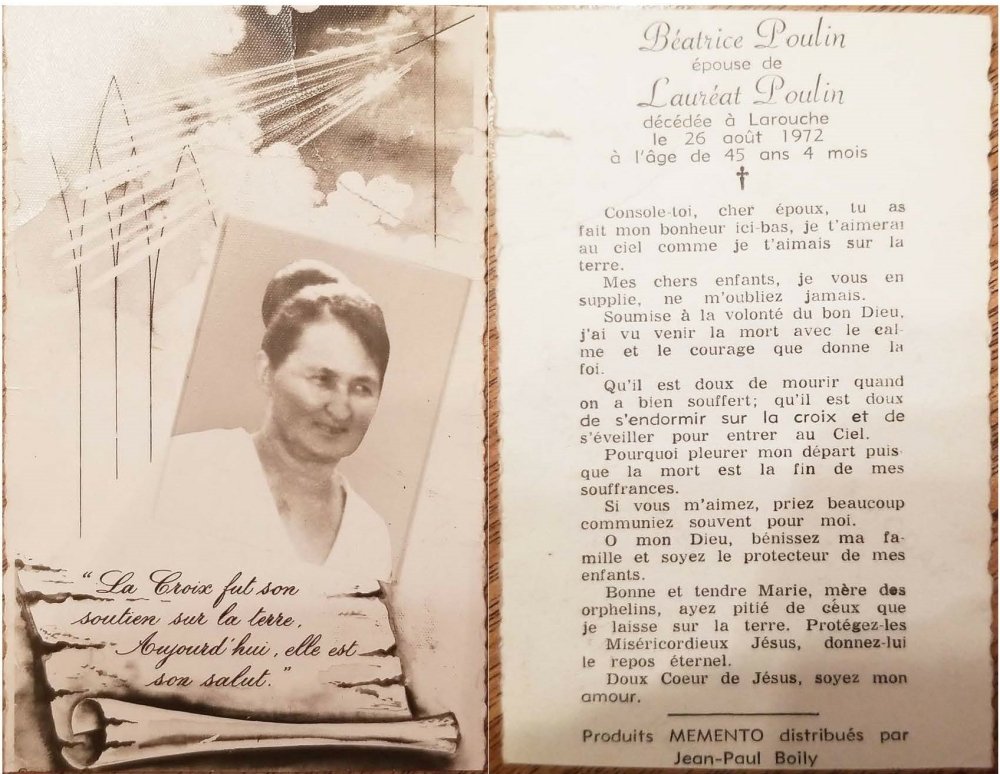 “La Croix fut son
soutien sur la terre.
Aujourd'hui, elle est
son salut.”
Béatrice Poulin
épouse de
Lauréat Poulin
décédée à Larouche
le 26 août 1972
à l'âge de 45 ans 4 mois
Console-toi, cher époux, tu as
fait mon bonheur ici-bas, je t'aimerai
au ciel comme je t'aimais sur la
terre.
Mes chers enfants, je vous en
supplie, ne m'oubliez jamais.
Soumise à la volonté du bon Dieu,
j'ai vu venir la mort avec le cal-
me et le courage que donne la
foi.
Qu'il est doux de mourir quand
on a bien souffert; qu'il est doux
de s'endormir sur la croix et de
s'éveiller pour entrer au Ciel.
Pourquoi pleurer mon départ puis-
que la mort est la fin de mes
souffrances.
Si vous m'aimez, priez beaucoup
communiez souvent pour moi.
O mon Dieu, bénissez ma fa-
mille et soyez le protecteur de mes
enfants.
Bonne et tendre Marie, mère des
orphelins, ayez pitié de ceux que
je laisse sur la terre. Protégez-les
Miséricordieux Jésus, donnez-lui
le repos éternel.
Doux Coeur de Jésus, soyez mon
amour.
Produits MEMENTO distribués par
Jean-Paul Boily